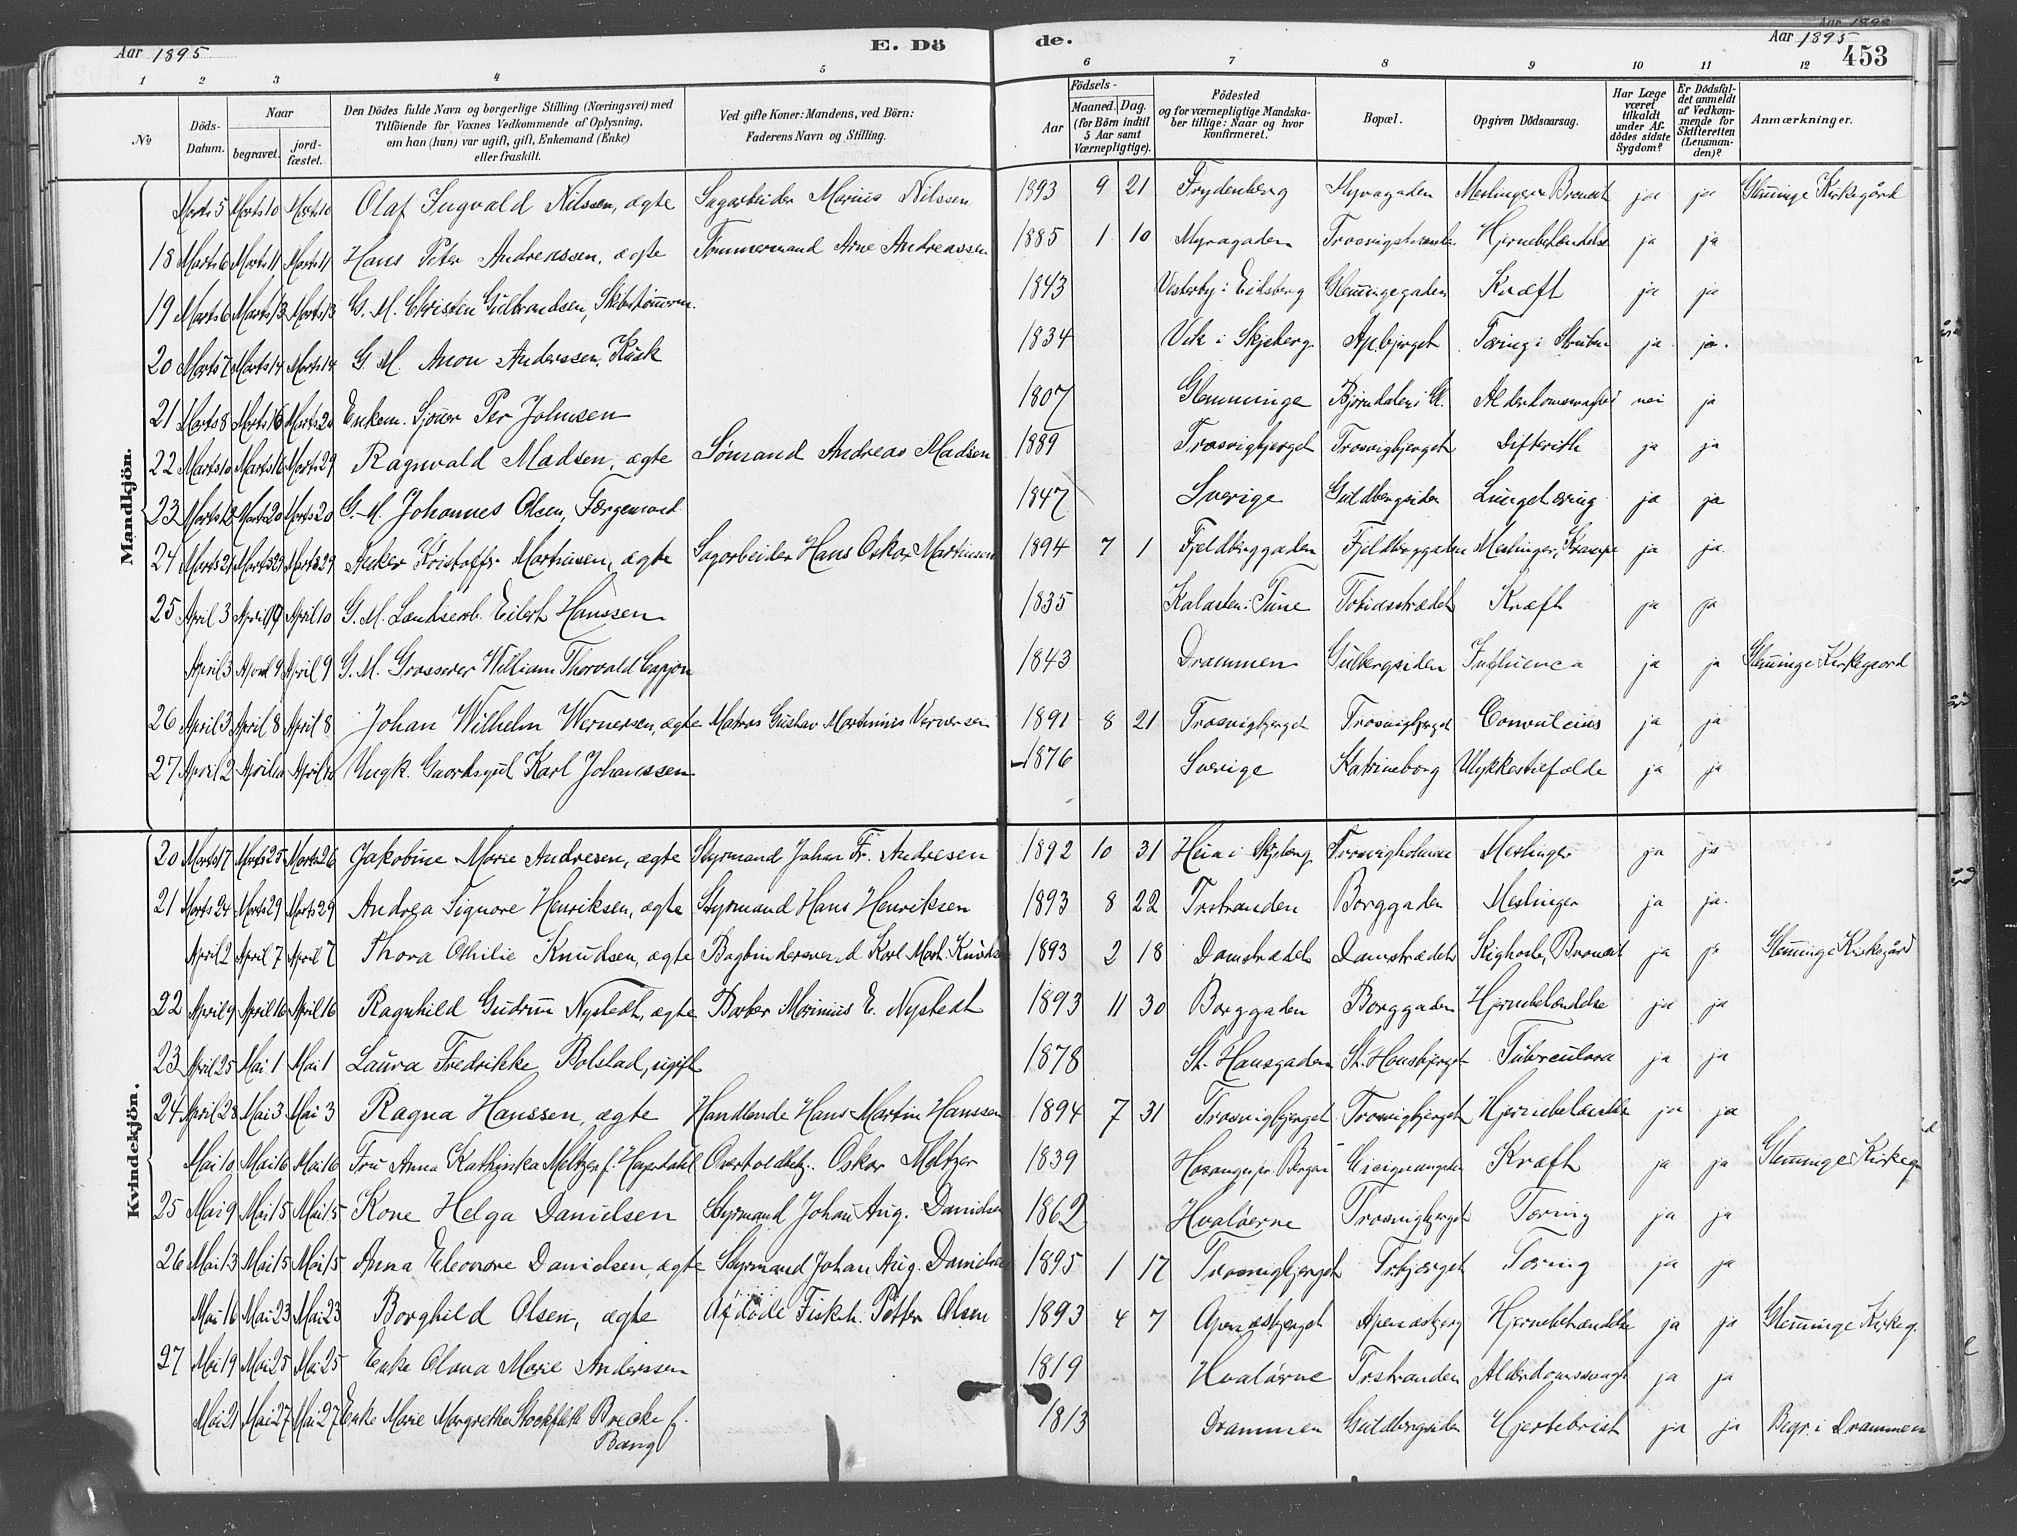 Aar 1895 E. Dö de. Aar 1895 453
1 2 3 4 5 6 7 8 9 10 11 12
No Döds-Datum. Naar begravet. jordfæstet. Den Dödes fulde Navn og borgerlige Stilling (Næringsvei) med Tilföiende for Voxnes Vedkommende af Oplysning, om han (hun) var ugift, gift, Enkemand (Enke) eller fraskilt. Ved gifte Koner: Mandens, ved Börn: Faderens Navn og Stilling. Födsels- Aar Maaned. Dag. (for Börn indtil 5 Aar samt Værnepligtige). Födested og for værnepligtige Mandskaber tillige: Naar og hvor konfirmeret. Bopæl. Opgiven Dödsaarsag. Har Læge været tilkaldt under Afdödes sidste Sygdom? Er Dödsfaldet anmeldt af Vedkommende for Skifteretten (Lensmanden)? Anmærkninger.
Mandkjön.
Marts 5 Marts 10 Marts 10 Olaf Ingvald Nilssen, ægte Sagarbeider Marius Nilssen 1893 9 21 Frydenberg Myragaden Meslinger Bronkit ja ja Glemminge Kirkegård
18 Marts 6 Marts 11 Marts 11 Hans Peter Andreassen, ægte Tømmermand Arne Andreassen 1885 1 10 Myragaden Hjernebetændelse ja ja
19 Marts 6 Marts 13 Marts 13 G. M. Christen Gulbrandsen, Skibstømmerm. 1843 Vesterby i Eidsberg Glemmingegaden Kræft ja ja
20 Marts 7 Marts 14 Marts 14 G. M. Anon Anderssen, Kusk 1834 Vik i Skjeberg Apbjerget Tæring i Struben ja ja.
21 Marts 8 Marts 16 Marts 20 Enkem. Sjouer Per Johnsen 1807 Glemminge Bjørndalen i Gl. nei ja
22 Marts 10 Marts 16 Marts 29 Ragnvald Madsen, ægte Sømand Andreas Madsen 1889 Trosvigbjerget Trosvigbjerget Difterith ja ja
23 Marts 20 Marts 20 G. M. Johannes Olsen, Færgemand 1847 Sverige Guldbergsiden Lungetæring ja ja
24 Marts 29 Marts 29 Kristoffer Martinsen, ægte Sagarbeider Hans Oskar Martinsen 1894 7 1 Fjeldberggaden Fjeldberggaden Meslinger, Krampe ja ja.
25 April 3 April 10 G. M. Eilert Hanssen 1835 Kalasten i Tune Tobiasstrædet Kræft ja ja
April 3 April 9 April 9 G. M. Grosserer William Thorvald 1843 Drammen Gulbergsiden Influenca ja ja Glemminge Kirkegaard
26 April 3 April 8 April 8 Johan Wilhelm Wernersen, ægte Matros Gustav Martinius Vernersen 1891 8 21 Trosvigbjerget Trosvigbjerget ja ja
27 April 2 April 10 April 10 Ungk. Gaardsgut Karl Johanssen 1876 Sverige Katrineborg Ulykkestilfælde ja ja
Kvindekjön.
20 Marts 17 Marts 25 Marts 26 Jakobine Marie Andresen, ægte Styrmand Johan Fr. Andresen 1892 10 31 Heia i Skjeberg Trosvigholmen Meslinger ja ja
21 Marts 24 Marts 29 Marts 29 Andrea Signore Henriksen, ægte Styrmand Hans Henriksen 1893 8 22 Trstranden Borggaden Meslinger ja ja.
April 2 April 7 April 7 Thora Othilie Knudsen, ægte Bogbindersvend Karl Mart. Knudsen 1893 2 18 Damstrædet Damstrædet Kighoste, Bronkit ja ja Glemminge Kirkegård
22 April 9 April 16 April 16 Ragnhild Gudrun Nystedt, ægte Barber Marinius E. Nystedt 1893 11 30 Borggaden Borggaden Hjernebetændelse ja ja
23 April 25 Mai 1 Mai 1 Laura Fredrikke Bolstad, ugift 1878 St. Hansgaden St. Hansbjerget Tuberculosa ja ja
24 April 28 Mai 3 Mai 3 Ragna Hanssen, ægte Handlende Hans Martin Hanssen 1894 7 31 Trosvigbjerget Trosvigbjerget Hjernebetændelse ja ja
Mai 10 Mai 16 Mai 16 Fru Anna Kathinka Meltzer f. Heyerdahl Overtoldbetj. Oskar Meltzer 1839 Kræft ja ja Glemminge Kirkeg.
25 Mai 9 Mai 15 Mai 15 Kone Helga Danielsen Styrmand Johan Aug. Danielsen 1862 Hvaløerne Trosvigbjerget Tæring ja ja
26 Mai 13 Mai 15 Mai 15 Anna Eleonore Danielsen, ægte Styrmand Johan Aug. Danielsen 1895 1 17 Trosvigbjerget Trbjerget Tæring ja ja
Mai 16 Mai 23 Mai 23 Borghild Olsen, ægte Afdöde Fiskeh. Petter Olsen 1893 4 7 Apenæsbjerget Apenæsbjerg Hjernebetændelse ja ja Glemminge Kirkeg.
27 Mai 19 Mai 25 Mai 25 Enke Olava Marie Anderssen 1819 Hvaløerne Trstranden Alderdomssvagh. ja ja
Mai 21 Mai 27 Mai 27 Enke Marie Margrethe Stockfleth Breake f. Bang 1813 Drammen Guldbergsiden Hjertebrist ja ja Begr. i Drammen